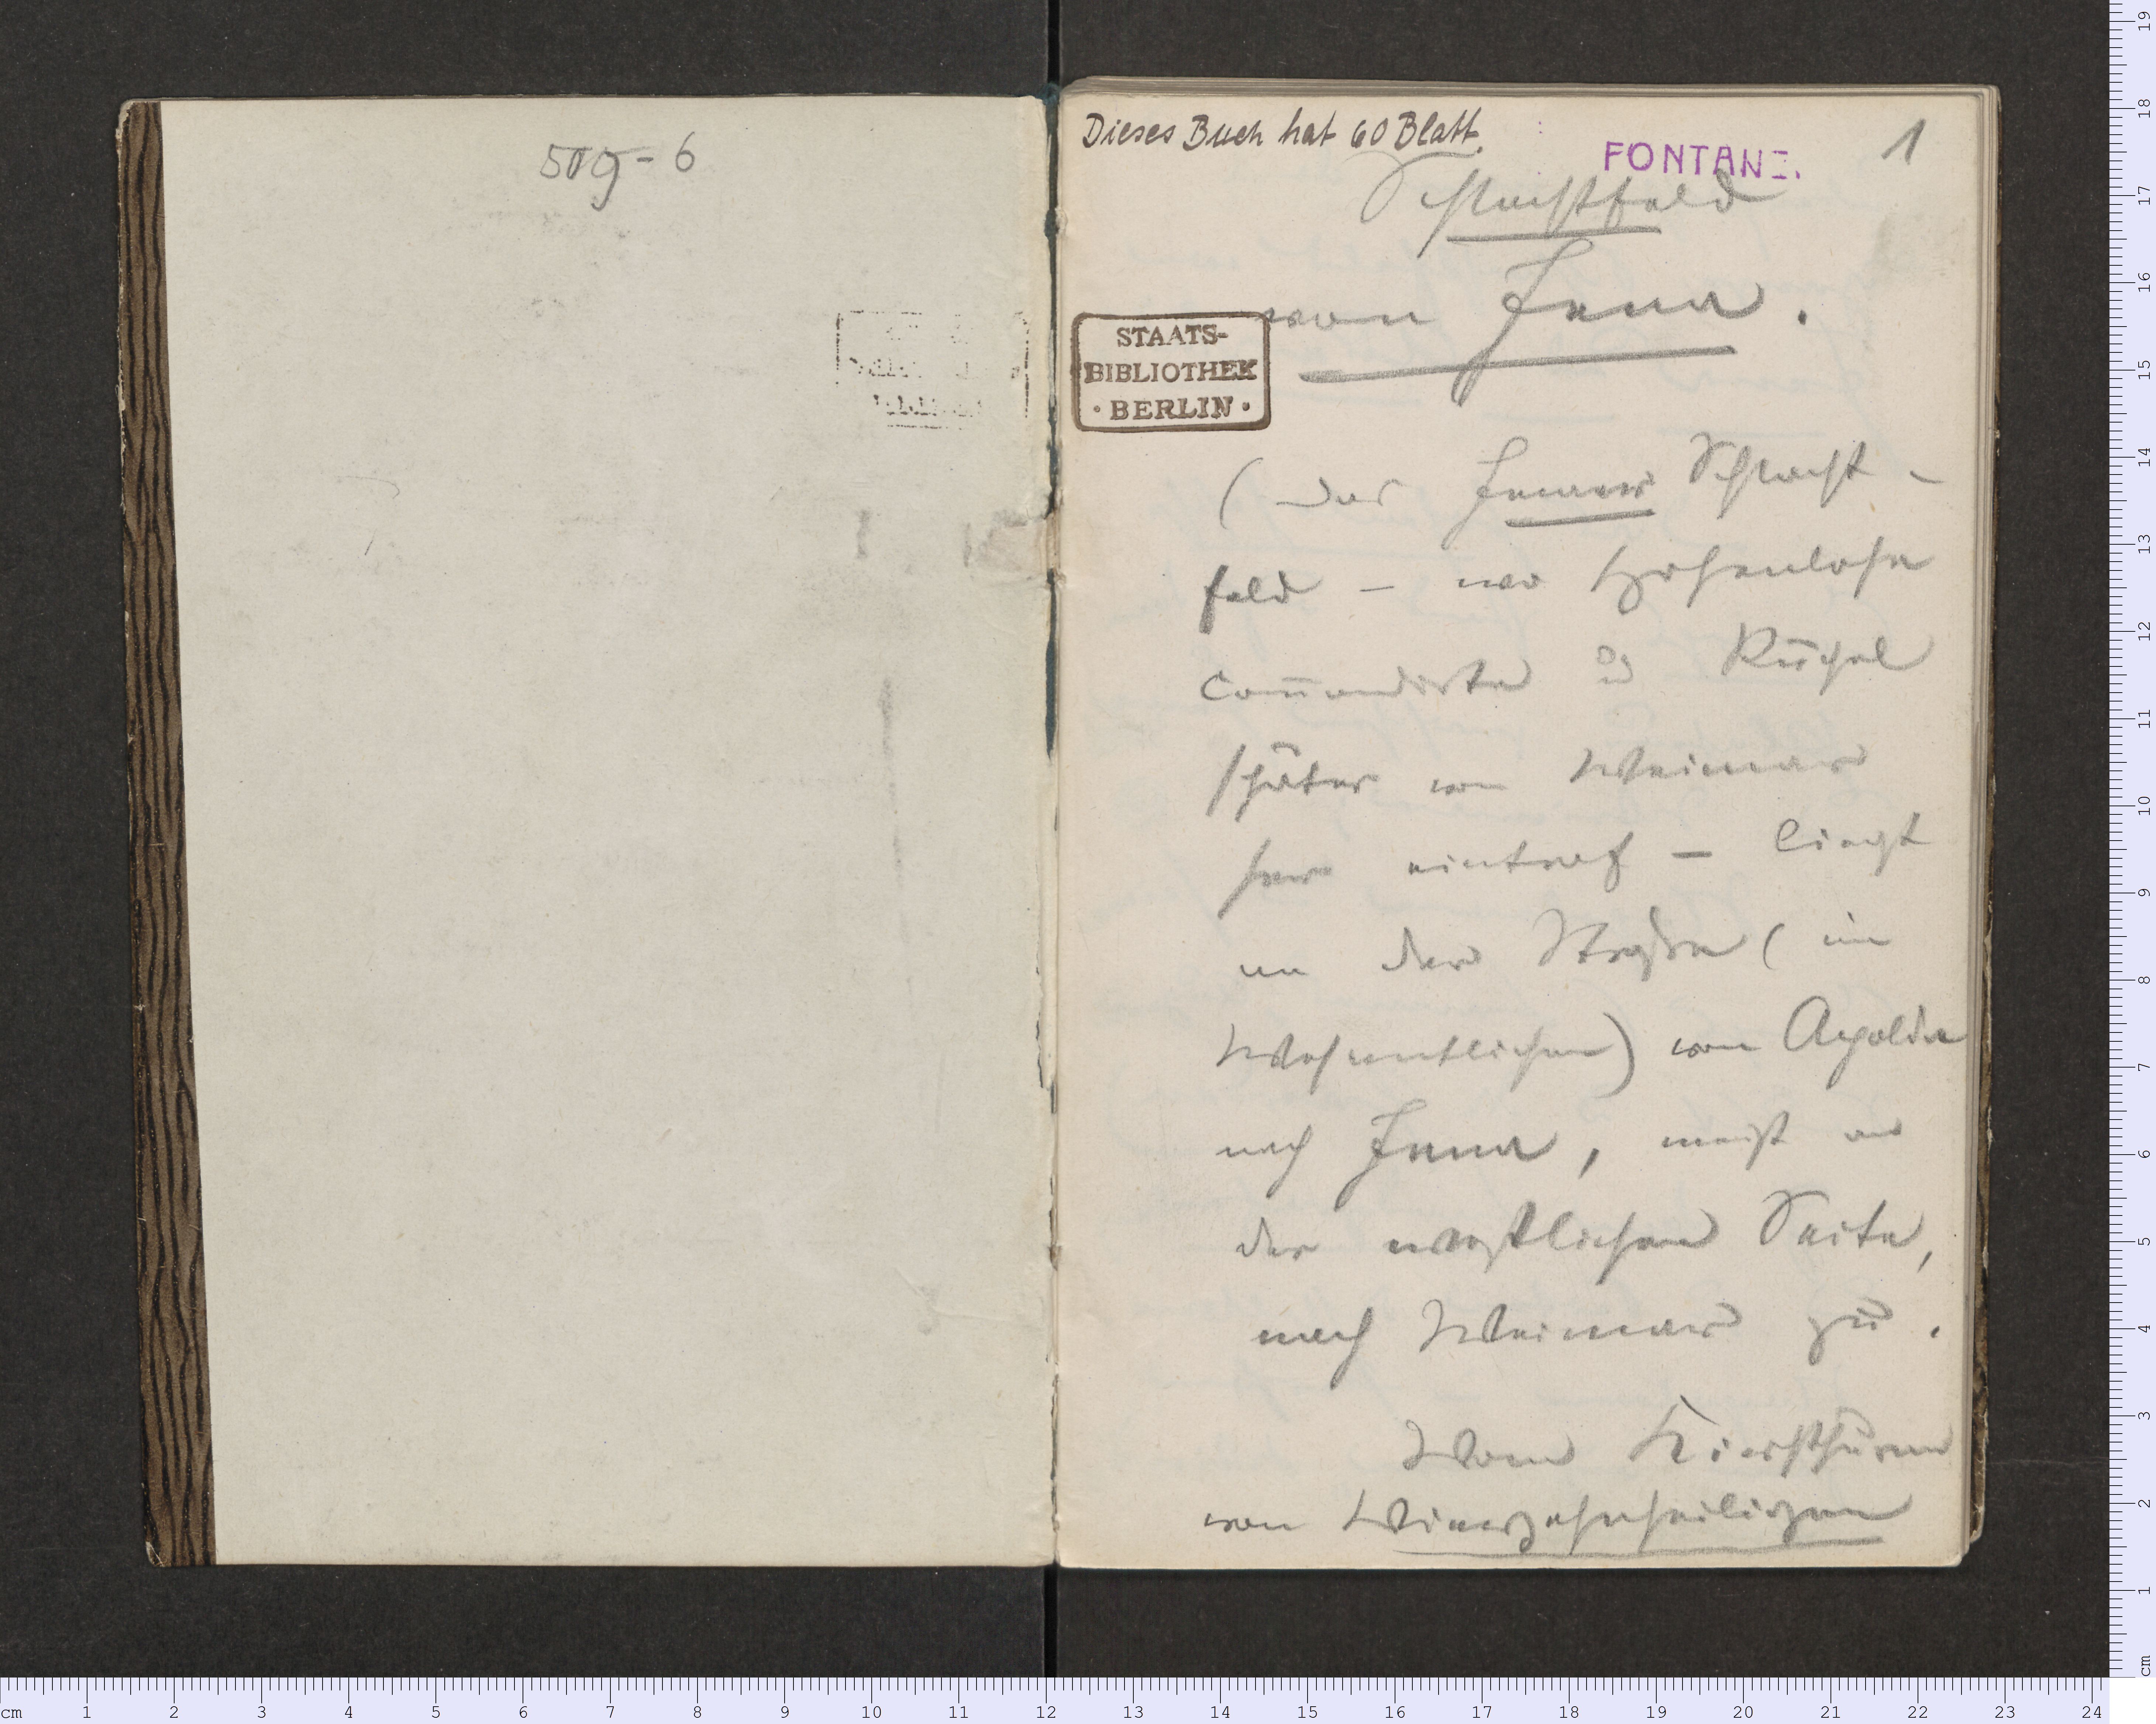 509-6
Dieses Buch hat 60 Blatt.
FONTANE.
1
Schlachtfeld
von Jena.
STAATS-
BIBLIOTHEK
· BERLIN ·
(Das Jenaer Schlacht-
feld – wo Hohenlohe
com̅andirte u Rüchel
später von Weimar
her eintraf – liegt
an der Straße (im
Wesentlichen) von Apolda
nach Jena, meist an
der westlichen Seite,
nach Weimar zu.
Vom Kirchthurm
von Vierzehnheiligen